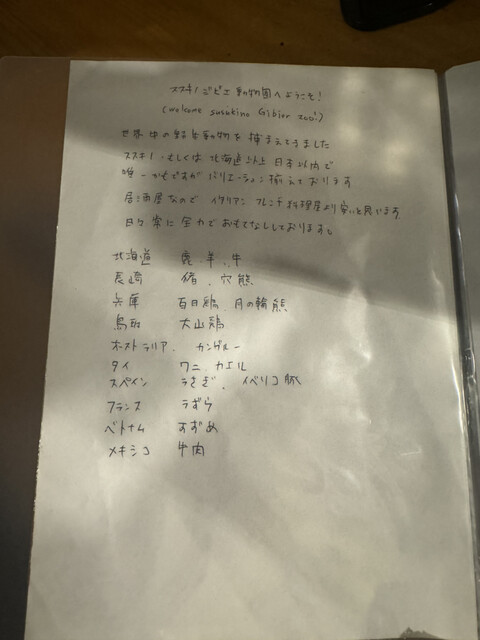 ススキノジビエ動物園へようこそ!
(welcome susukino Gibier zoo!)
世界中の野生動物を捕まえてきました
ススキノ、もしくは北海道以上 日本以内で
唯一かもですが バリエーション揃えております
居酒屋なので イタリアン フレンチ料理屋より安いと思います。
日々常に全力でおもてなししております。
北海道 鹿、羊、牛
長崎 猪、穴熊
兵庫 百日鶏、月の輪熊
鳥取 大山鶏
オーストラリア、カンガルー
タイ ワニ カエル
スペイン うさぎ、イベリコ豚
フランス うずら
ベトナム すずめ
メキシコ 牛肉